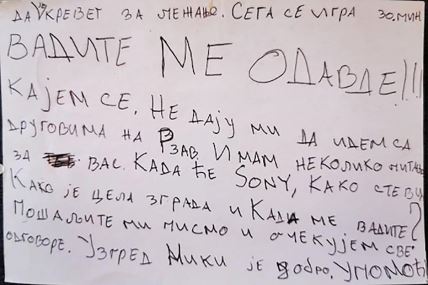 ДА УКРЕВЕТ ЗА ЛЕЖАЊЕ. СЕГА СЕ ИГРА 30 МИН
ВАДИТЕ МЕ ОДАВДЕ!!!
КАЈЕМ СЕ. НЕ ДАЈУ МИ ДА ИДЕМ СА
ДРУГОВИМА НА РЗАВ. ИМАМ НЕКОЛИКО ПИТАЊ
ЗА ВАС. КАДА ЋЕ SONY, КАКО СТЕ ВИ
КАКО ЈЕ ЦЕЛА ЗГРАДА И КАДА МЕ ВАДИТЕ?
ПОШАЉИТЕ МИ ПИСМО И ОЧЕКУЈЕМ СВЕ
ОДГОВОРЕ. УЗГРЕД МИКИ ЈЕ ДОБРО. УПОМОЋ!